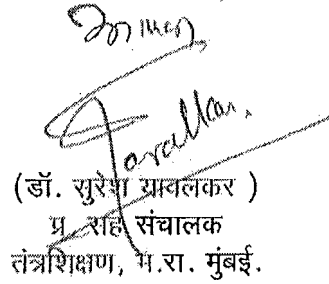 (डॉ. सुरेश यावलकर )
प्र. सह संचालक
तंत्रशिक्षण, म.रा. मुंबई.